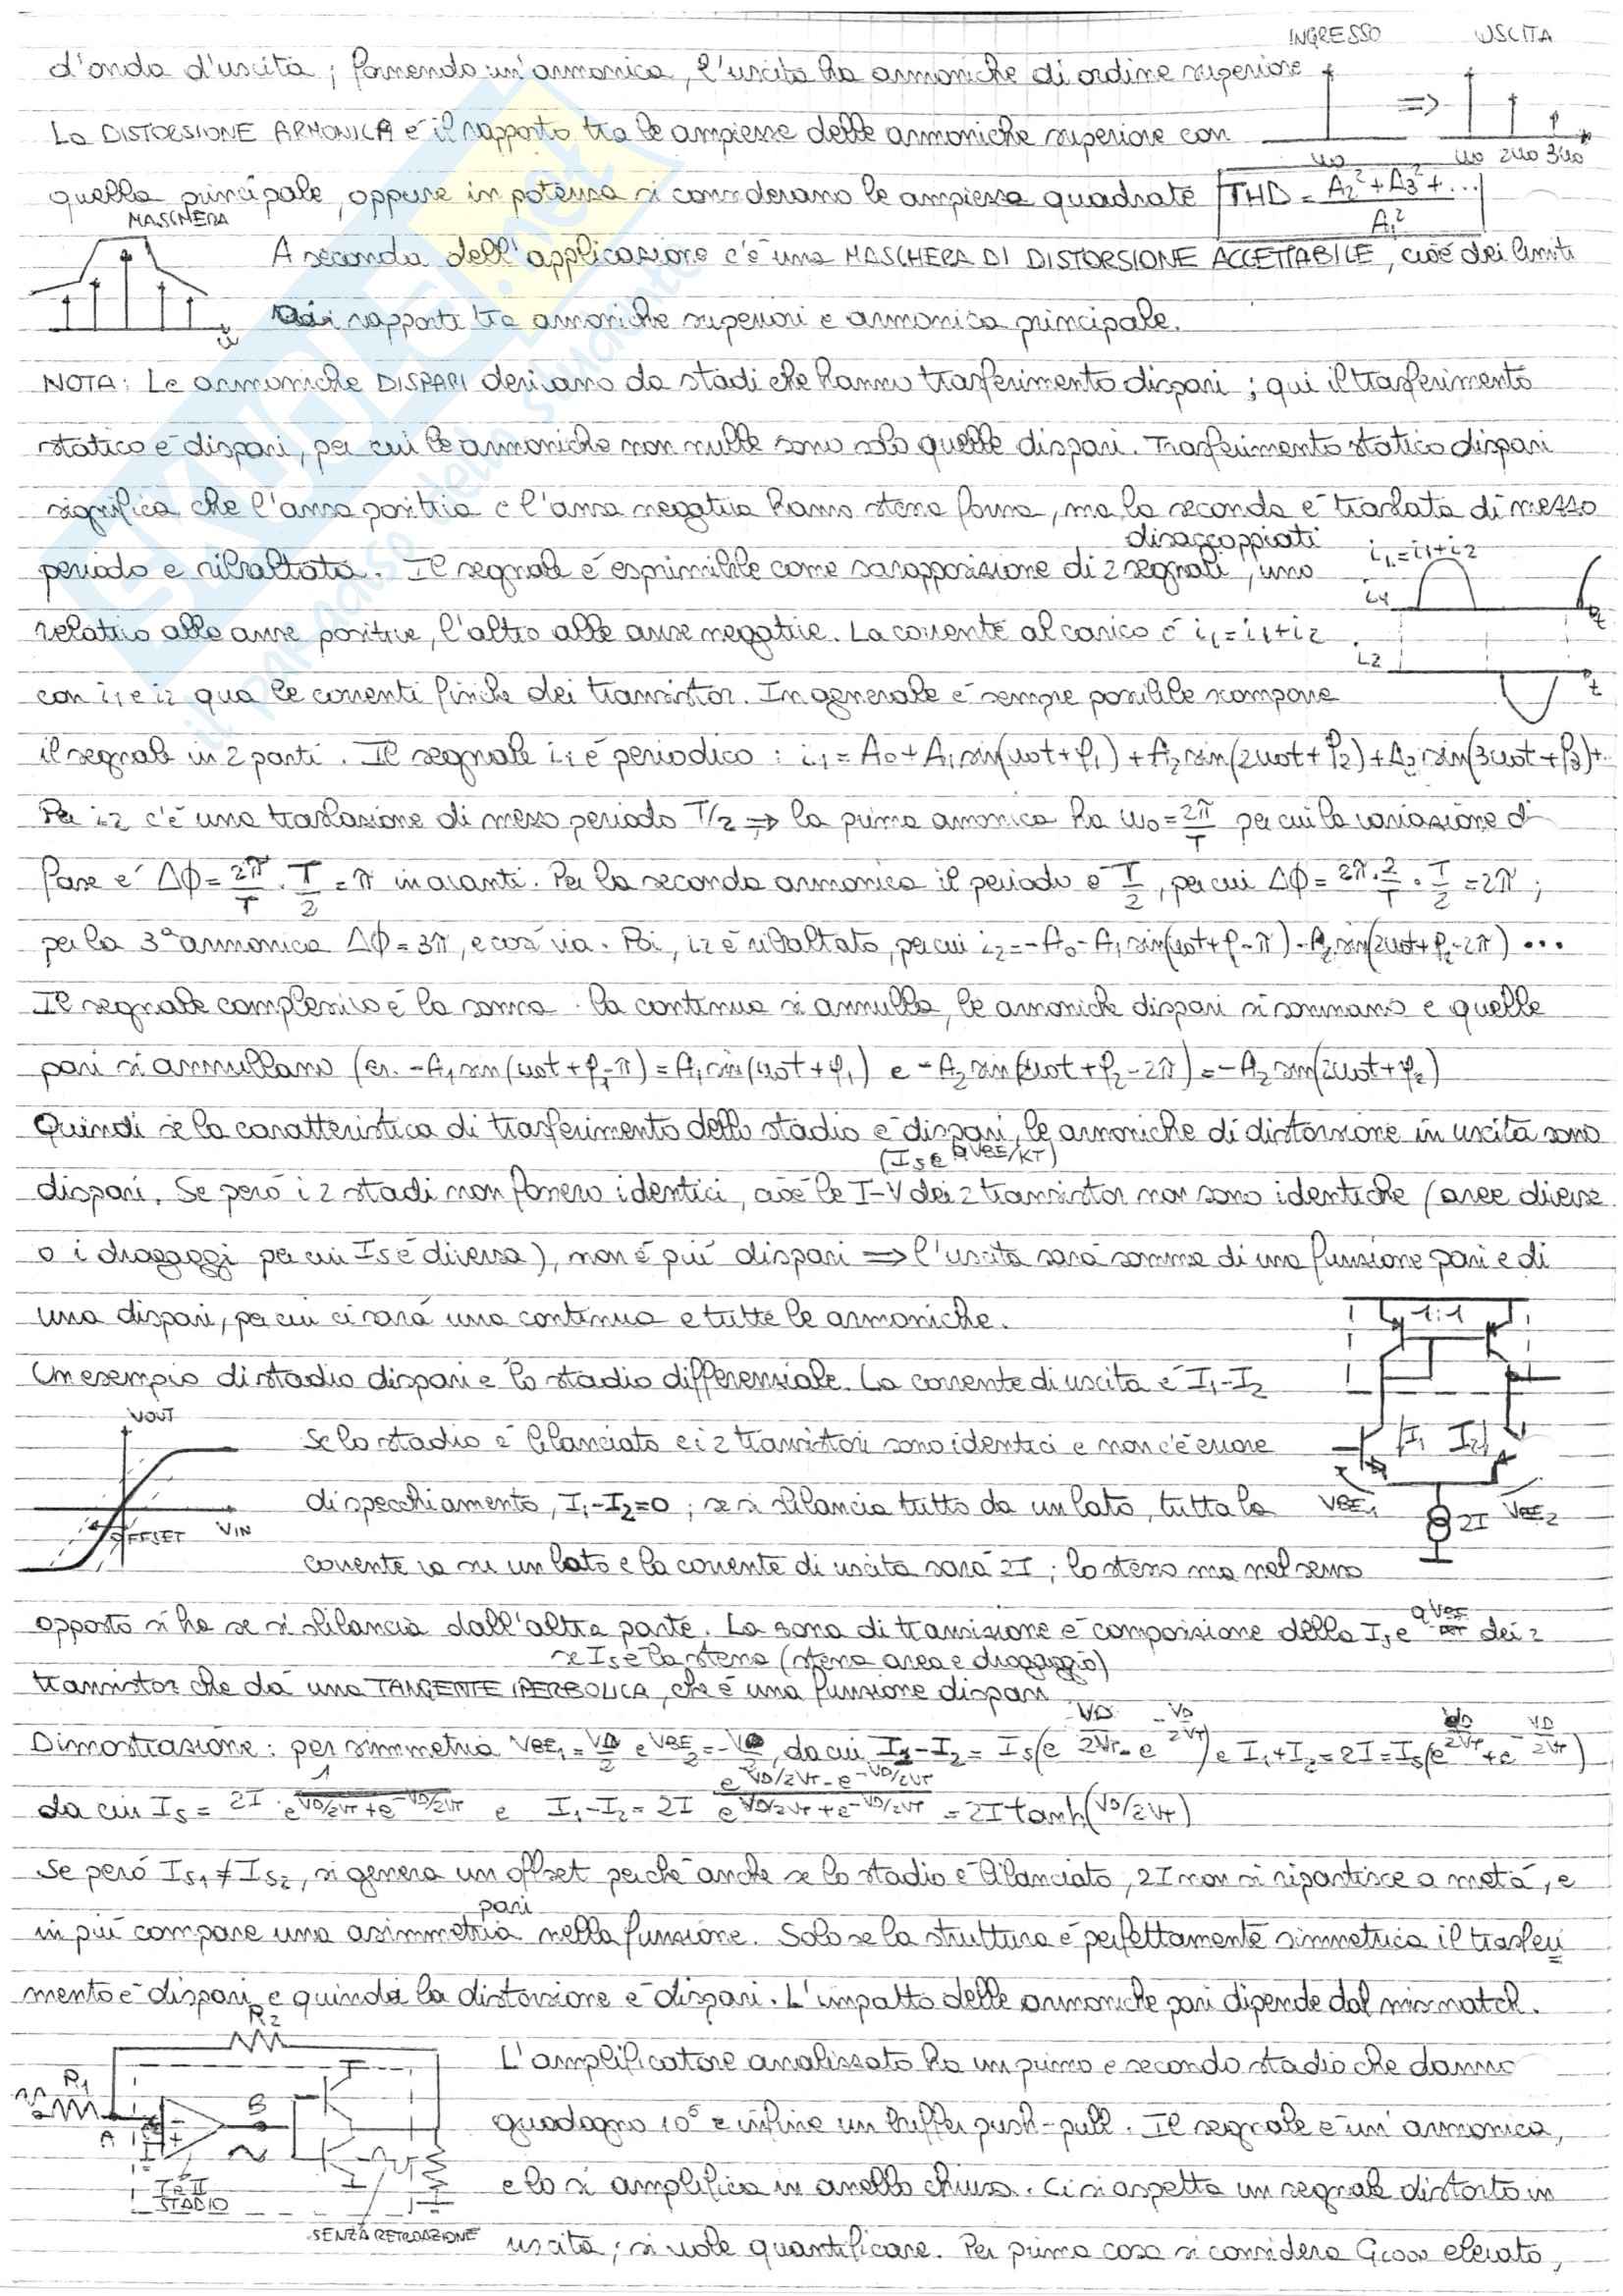 INGRESSO USCITA
d'onda d'uscita; fornendo un'armonica, l'uscita ha armoniche di ordine superiore
La DISTORSIONE ARMONICA è il rapporto tra le ampiezze delle armoniche superiore con
ω0 ω0 2ω0 3ω0
quella principale, oppure in potenza si considerano le ampiezze quadrate THD = (A2² + A3² + ...)/A1²
MASCHERA
A seconda dell'applicazione c'è una MASCHERA DI DISTORSIONE ACCETTABILE, cioè dei limiti
ai rapporti tra armoniche superiori e armonica principale.
ω
NOTA: Le armoniche DISPARI derivano da stadi che hanno trasferimento dispari; qui il trasferimento
statico è dispari, per cui le armoniche non nulle sono solo quelle dispari. Trasferimento statico dispari
significa che l'onda positiva e l'onda negativa hanno stessa forma, ma la seconda è traslata di mezzo
periodo e ribaltata. Il segnale è esprimibile come sovrapposizione di 2 segnali disaccoppiati, uno
iL=i1+i2
i1 t
relativo alle onde positive, l'altro alle onde negative. La corrente al carico è iL=i1+i2
i2 t
con i1 e i2 qua le correnti fisiche dei transistor. In generale è sempre possibile scomporre
il segnale in 2 parti. Il segnale i1 è periodico: i1 = A0 + A1 sin(ω0t+φ1) + A2 sin(2ω0t+φ2) + A3 sin(3ω0t+φ3)+..
Per i2 c'è una traslazione di mezzo periodo T/2 ⇒ la prima armonica ha ω0 = 2π/T per cui la variazione di
fase è Δϕ = 2π/T · T/2 = π in avanti. Per la seconda armonica il periodo è T/2, per cui Δϕ = 2π·2/T · T/2 = 2π;
per la 3ª armonica Δϕ = 3π, e così via. Poi, i2 è ribaltato, per cui i2 = -A0 - A1 sin(ω0t+φ-π) - A2 sin(2ω0t+φ2-2π) ...
Il segnale complessivo è la somma: la continua si annulla, le armoniche dispari si sommano e quelle
pari si annullano (es. -A1 sin(ω0t+φ1-π) = A1 sin(ω0t+φ1) e -A2 sin(2ω0t+φ2-2π) = -A2 sin(2ω0t+φ2)
Quindi se la caratteristica di trasferimento dello stadio è dispari, le armoniche di distorsione in uscita sono
(Is e^qVBE/KT)
dispari. Se però i 2 stadi non fossero identici, cioè le I-V dei 2 transistor non sono identiche (aree diverse
o i dragaggi per cui Is è diversa), non è più dispari ⇒ l'uscita sarà somma di una funzione pari e di
una dispari, per cui ci sarà una continua e tutte le armoniche.
1:1
Un esempio di stadio dispari è lo stadio differenziale. La corrente di uscita è I1-I2
VOUT
Se lo stadio è bilanciato e i 2 transistori sono identici e non c'è errore
I1 I2
di specchiamento, I1-I2=0; se si sbilancia tutto da un lato, tutta la
OFFSET VIN
VBE1 2I VBE2
corrente va su un lato e la corrente di uscita sarà 2I; lo stesso ma nel senso
opposto si ha se si sbilancia dall'altra parte. La zona di transizione è composizione della Is e^qVBE/KT dei 2
se Is è la stessa (stessa area e dragaggio)
transistor che dà una TANGENTE IPERBOLICA, che è una funzione dispari
Dimostrazione: per simmetria VBE1 = VD/2 e VBE2 = -VD/2, da cui I1-I2 = Is(e^VD/2VT - e^-VD/2VT) e I1+I2=2I=Is(e^VD/2VT + e^-VD/2VT)
da cui Is = 2I · 1/(e^VD/2VT + e^-VD/2VT) e I1-I2 = 2I (e^VD/2VT - e^-VD/2VT)/(e^VD/2VT + e^-VD/2VT) = 2I tanh(VD/2VT)
Se però Is1 ≠ Is2, si genera un offset perché anche se lo stadio è bilanciato, 2I non si ripartisce a metà, e
in più compare una asimmetria pari nella funzione. Solo se la struttura è perfettamente simmetrica il trasferi
mento è dispari e quindi la distorsione è dispari. L'impatto delle armoniche pari dipende dal mismatch.
R2
L'amplificatore analizzato ha un primo e secondo stadio che danno
R1
A B
guadagno 10⁵ e infine un buffer push-pull. Il segnale è un'armonica,
e lo si amplifica in anello chiuso. Ci si aspetta un segnale distorto in
I e II
STADIO
SENZA RETROAZIONE
uscita; si vuole quantificare. Per prima cosa si considera Gloop elevato,